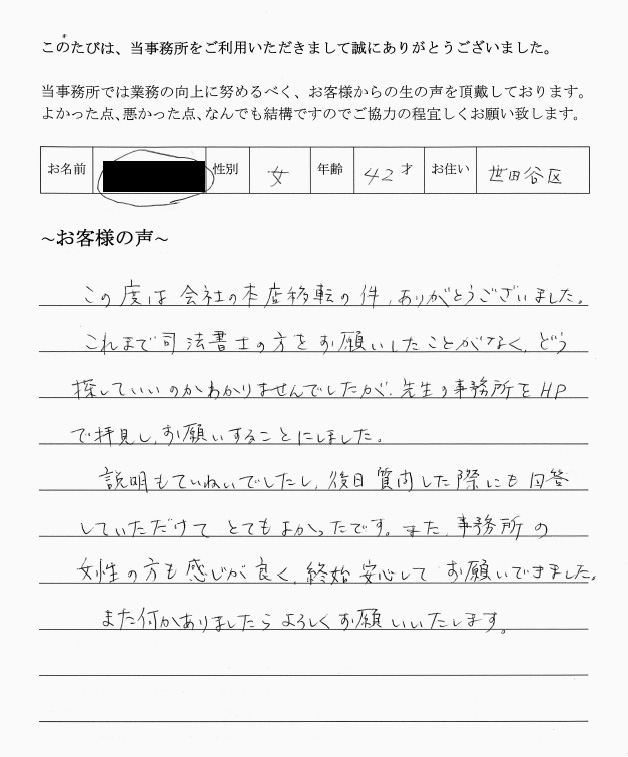 このたびは、当事務所をご利用いただきまして誠にありがとうございました。
当事務所では業務の向上に努めるべく、お客様からの生の声を頂戴しております。
よかった点、悪かった点、なんでも結構ですのでご協力の程宜しくお願い致します。
お名前 性別 女 年齢 42才 お住い 世田谷区
~お客様の声~
この度は会社の本店移転の件、ありがとうございました。
これまで司法書士の方をお願いしたことがなく、どう
探していいのかわかりませんでしたが、先生の事務所をHP
で拝見し、お願いすることにしました。
説明もていねいでしたし、後日質問した際にも回答
していただけてとてもよかったです。また、事務所の
女性の方も感じが良く、終始安心してお願いできました。
また何かありましたらよろしくお願いいたします。